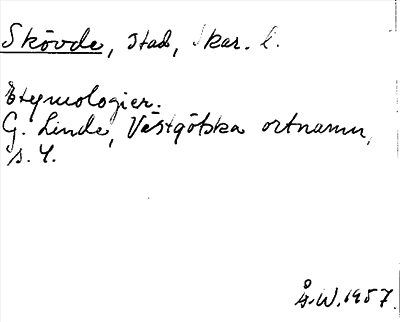 Skövde, stad, Skar. l.
Etymologier.
G. Linde, Västgötska ortnamn,
s. 4.
Å.W. 1957.